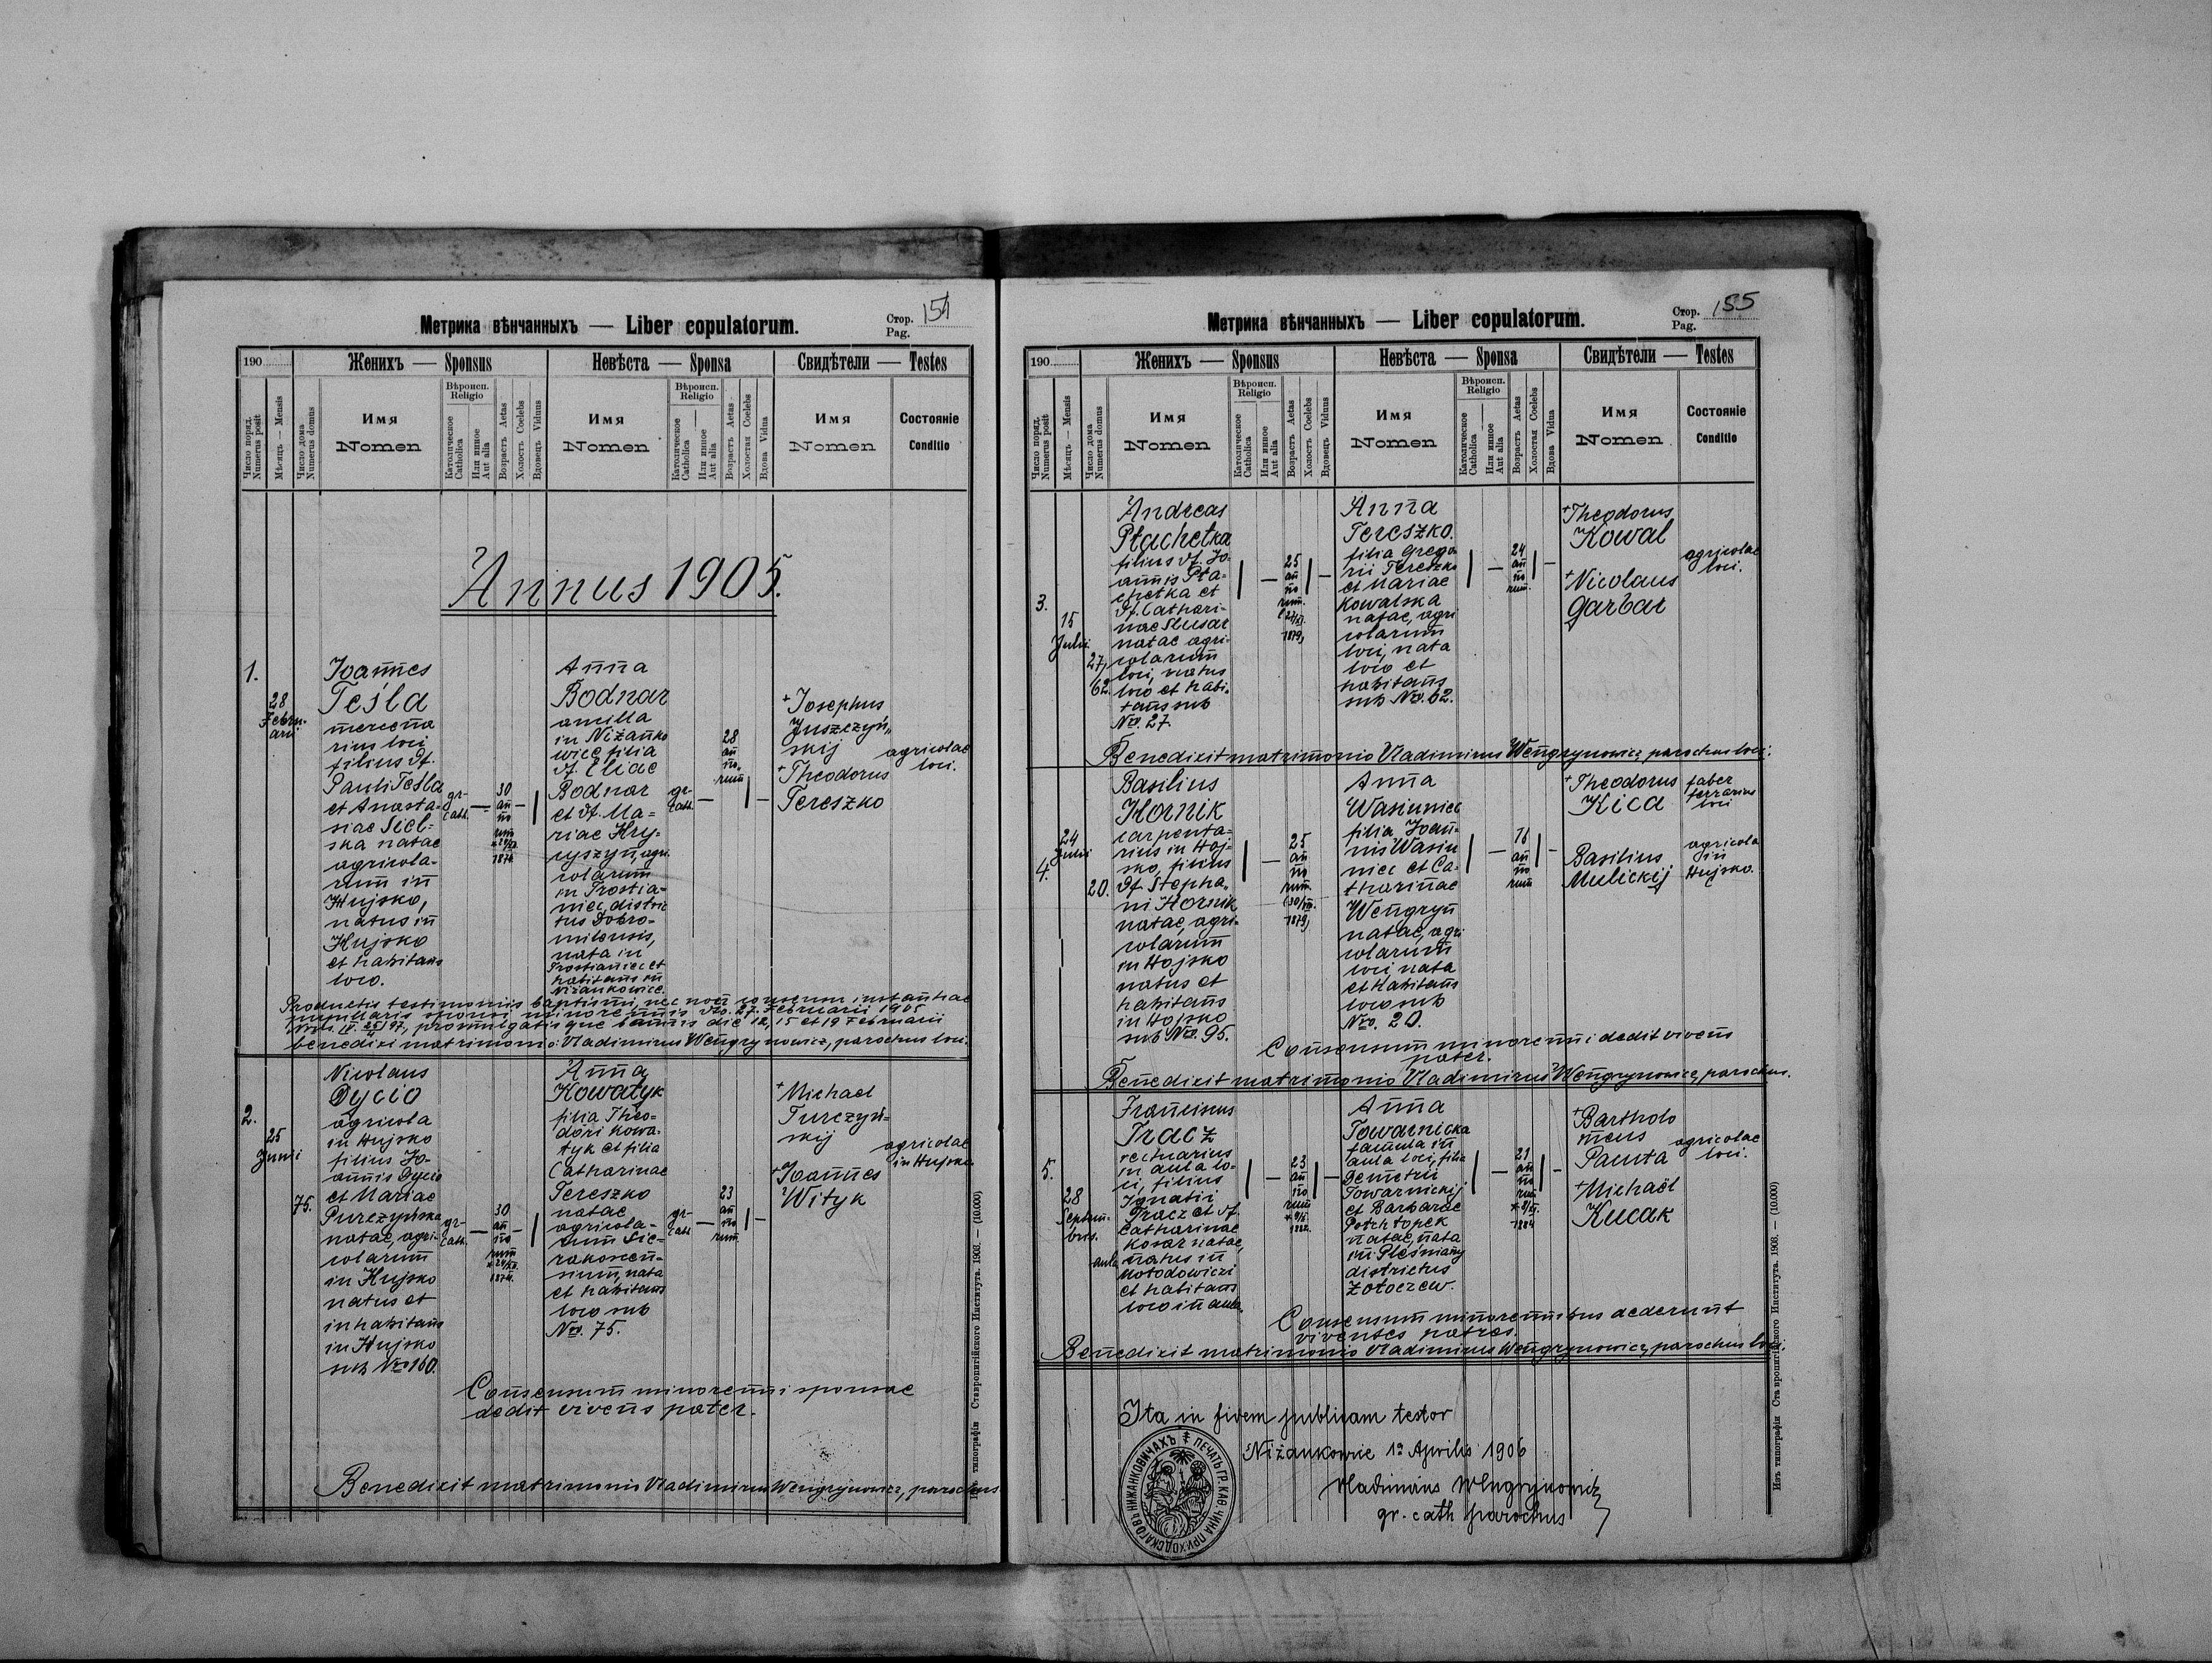 Метрика вѣнчанныхъ — Liber copulatorum.
Стор. Pag. 154
190
Женихъ — Sponsus
Невѣста — Sponsa
Свидѣтели — Testes
Число поряд. Numerus posit
Мѣсяцъ — Mensis
Число дома Numerus domus
Имя Nomen
Вѣроисп. Religio
Католическое Catholica
Или инное Aut alia
Возрастъ Aetas
Холостъ Coelebs
Вдовецъ Viduus
Имя Nomen
Вѣроисп. Religio
Католическое Catholica
Или инное Aut alia
Возрастъ Aetas
Холостая Coelebs
Вдова Vidua
Имя Nomen
Состояніе Conditio
Annus 1905.
1.
28
Febru-
arii
Joannes
Tesla
mercena
rius loci
filius †.
Pauli Tesla
et Anasta-
siae Siel-
ska natae
agricola-
rum in
Hujsko,
natus in
Hujsko
et habitans
loco.
gr-
cath.
30
an
no
rum
1874.
Anna
Bodnar
ancilla
in Nižanko
wice filia
†. Eliae
Bodnar
et †. Ma-
riae Hry-
cyszyn, agri
colarum
in Trostia-
niec, distric
tus Dobro-
milensis,
nata in
Trostianiec et
habitans in
Niżankowice.
gr-
cath.
28
an
no-
rum
+Josephus
Juszczyń„
skij
+Theodorus
Tereszko
agricolae
loci.
Productis testimoniis baptismi, nec non consensu instantiae
pupillaris sponsi minorennis dto. 27. Februarii 1905
promulgatisque bannis die 12, 15 et 19 Februarii
benedixi matrimonio: Vladimirus Wengrynowicz, parochus loci.
2.
25
Junii
75.
Nicolaus
Dycio
agricola
in Hujsko
filius Jo-
annis Dycio
et Mariae
Purczyńska
natae, agri-
colarum
in Hujsko
natus et
inhabitans
in Hujsko
sub Nro 160.
gr-
cath.
30
an
no
rum
1874.
Anna
Kowatyk
filia Theo-
dori Kowa-
tyk et filia
Catharinae
Tereszko
natae
agricola-
rum Sie-
rakoscen-
sium, nata
et habitans
loco sub
Nro. 75.
gr-
cath
23
an
no
rum
+Michael
Turczyń-
skij
+Joannes
Wityk
agricolae
in Hujsko.
Consensum minorenni sponsae
dedit vivens pater.
Benedixit matrimonio Vladimirus Wengrynowicz, parochus
Изъ типографіи Ставропигійского Института. 1903. — (10.000)
Метрика вѣнчанныхъ — Liber copulatorum.
Стор. Pag. 155
190
Женихъ — Sponsus
Невѣста — Sponsa
Свидѣтели — Testes
Число поряд. Numerus posit
Мѣсяцъ — Mensis
Число дома Numerus domus
Имя Nomen
Вѣроисп. Religio
Католическое Catholica
Или инное Aut alia
Возрастъ Aetas
Холостъ Coelebs
Вдовецъ Viduus
Имя Nomen
Вѣроисп. Religio
Католическое Catholica
Или инное Aut alia
Возрастъ Aetas
Холостая Coelebs
Вдова Vidua
Имя Nomen
Состояніе Conditio
3.
15
Julii.
27,
62.
Andreas
Ptachetka
filius †. Jo-
annis Pta-
chetka et
†. Cathari-
nae Slusar
natae agri-
colarum
loci, natus
loco et habi-
tans sub
Nro. 27.
25
an
no
rum.
1879)
Anna
Tereszko.
filia Grego-
rii Tereszko
et Mariae
Kowalska
natae, agri
colarum
loci, nata
loco et
habitans
sub Nro. 62.
24
an
no
rum.
+Theodorus
Kowal
+Nicolaus
Garbar
agricolae
loci.
Benedixit matrimonio Vladimirus Wengrynowicz, parochus loci.
4.
24
Julii
20.
Basilius
Hornik
carpenta-
rius in Hoj-
sko, filius
†. Stepha„
ni Hornik
natae, agri-
colarum
in Hojsko
natus et
habitans
in Hojsko
sub Nro. 95.
25
an
no
rum.
1879)
Anna
Wasiuniec
filia Joan-
nis Wasiu
niec et Ca-
tharinae
Wengryn
natae, agri
colarum
loci nata
et habitans
loco sub
Nro. 20.
an
no
rum
+Theodorus
Kica
faber
ferrarius
loci
Basilius
Mulickij
agricola
in
Hujsko.
Consensum minorenni dedit vivens
pater.
Benedixit matrimonio Vladimirus Wengrynowicz, parochus.
5.
28
Septem-
bris.
aula
Franciscus
Tracz
vectuarius
in aula lo-
ci, filius
Ignatii
Tracz et †.
Catharinae
Kosar natae,
natus in
Hotodowiczi
et habitans
loco in aula.
23
an
no
rum
1882.
Anna
Towarnicka
famula in
aula loci, filia
Demetrii
Towarnickij
et Barbarae
Potchtopek
natae, nata
in Pleśniany
districtus
Zotoczew.
21
an
no
rum
1884
+Bartholo
meus
Pauta
+Michael
Kucak
agricolae
loci.
Consensum minorennibus dederunt
viventes patres.
Benedixit matrimonio Vladimirus Wengrynowicz, parochus loci.
Ita in fidem publicam testor
Niżankowice 1a Aprilis 1906
Vladimirus Wengrynowicz
gr. cath parochus
ПЕЧАТЬ ГР. КАѲ. ЧИНА ПРИХОДСКАГО ВЪ НИЖАНКОВИЧАХЪ
Изъ типографіи Ставропигійского Института. 1903. — (10.000)